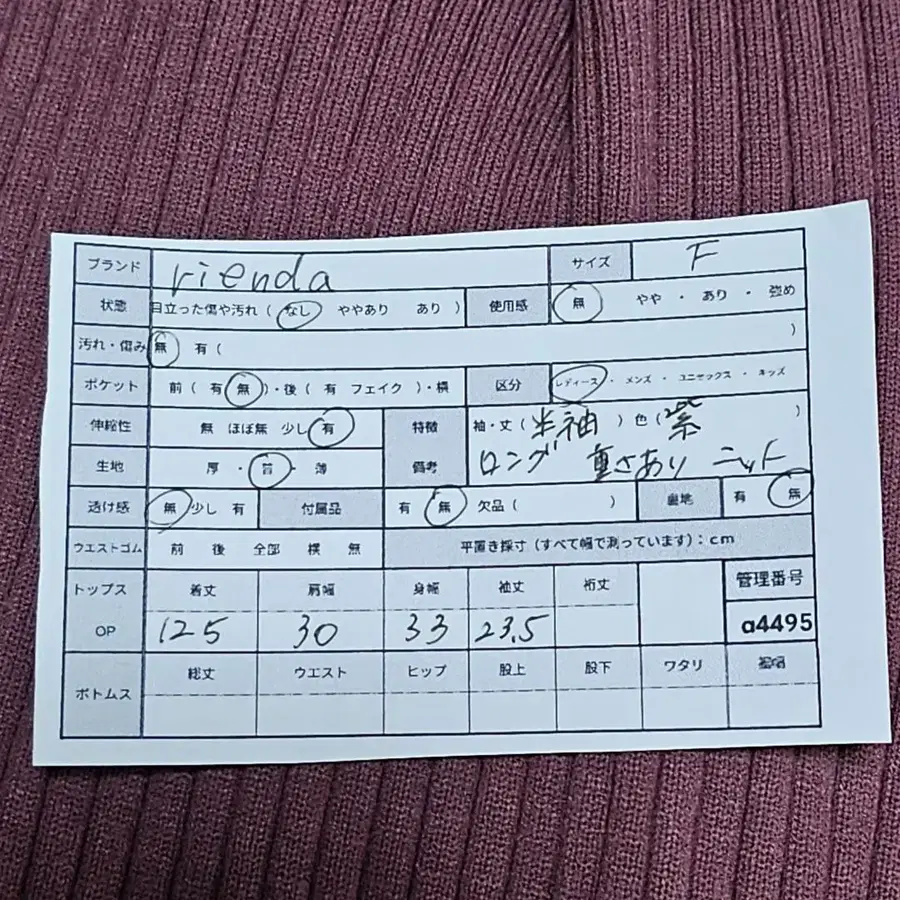 ブランド rienda サイズ F
状態 目立った傷や汚れ ( なし ややあり あり ) 使用感 無 やや ・ あり ・ 強め
汚れ・傷み 無 有 ( )
ポケット 前 ( 有 無 )・後 ( 有 フェイク )・横 区分 レディース ・ メンズ ・ ユニセックス ・ キッズ
伸縮性 無 ほぼ無 少し 有 特徴 袖・丈 ( 半袖 ) 色 ( 紫 )
生地 厚 ・ 普 ・ 薄 備考 ロング 重さあり ニット
透け感 無 少し 有 付属品 有 無 欠品 ( ) 裏地 有 無
ウエストゴム 前 後 全部 横 無 平置き採寸 (すべて幅で測っています) : cm
トップス 着丈 肩幅 身幅 袖丈 裄丈 管理番号
OP 125 30 33 23.5 a4495
ボトムス 総丈 ウエスト ヒップ 股上 股下 ワタリ